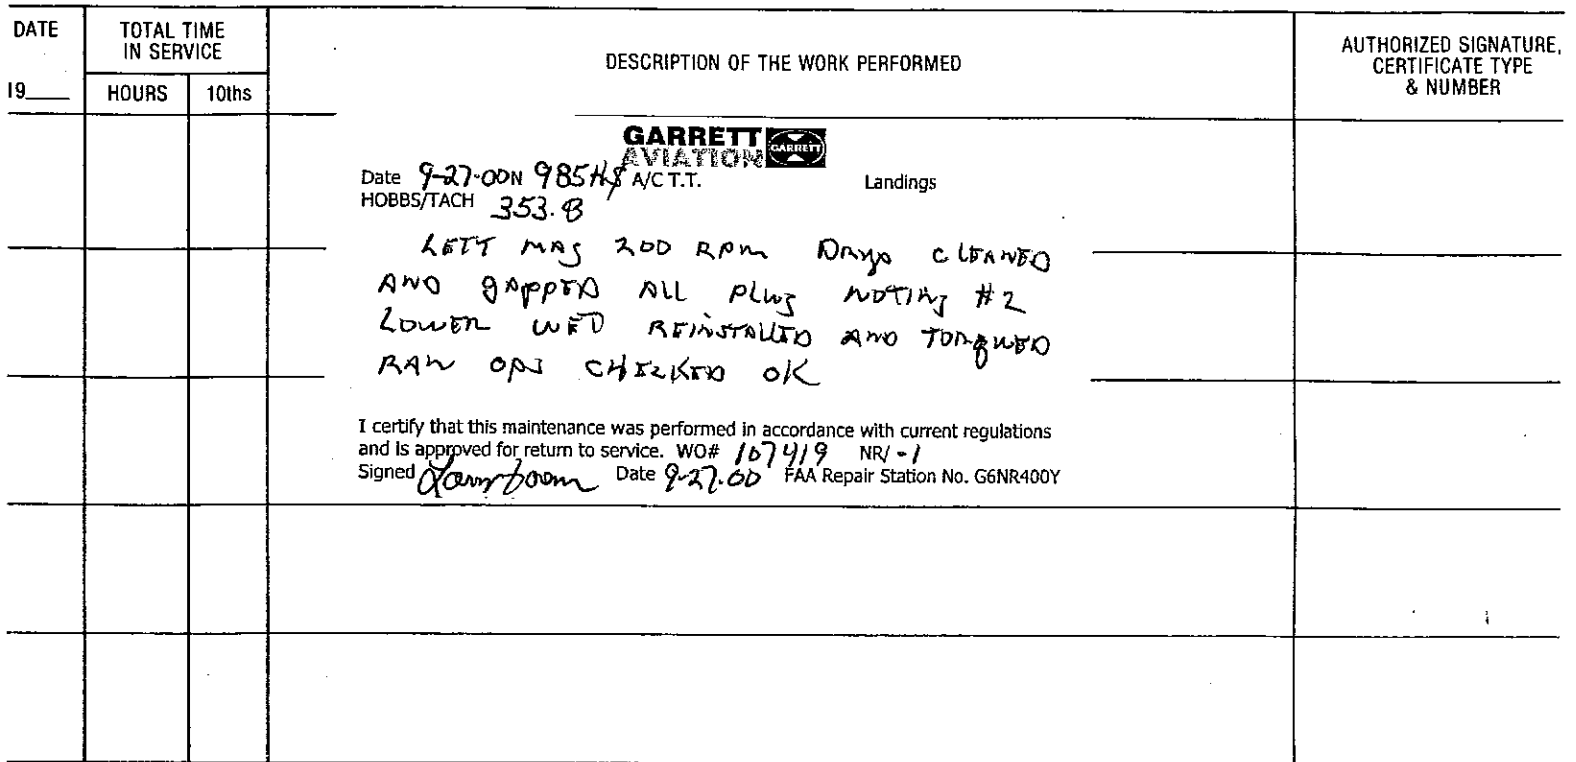 DATE
TOTAL TIME
IN SERVICE
DESCRIPTION OF THE WORK PERFORMED
AUTHORIZED SIGNATURE,
CERTIFICATE TYPE
& NUMBER
19____
HOURS
10ths
GARRETT
AVIATION
GARRETT
Date 9-27-00 N 985H A/C T.T. Landings
HOBBS/TACH 353.8
LEFT MAG 200 RPM CLEANED
AND gAPPED ALL PLUGS NOTING #2
LOWER WET REINSTALLED AND TORQUED
RAN OPS CHECKED OK
I certify that this maintenance was performed in accordance with current regulations
and is approved for return to service. WO# 107419 NR/ -1
Signed Date 9-27-00 FAA Repair Station No. G6NR400Y